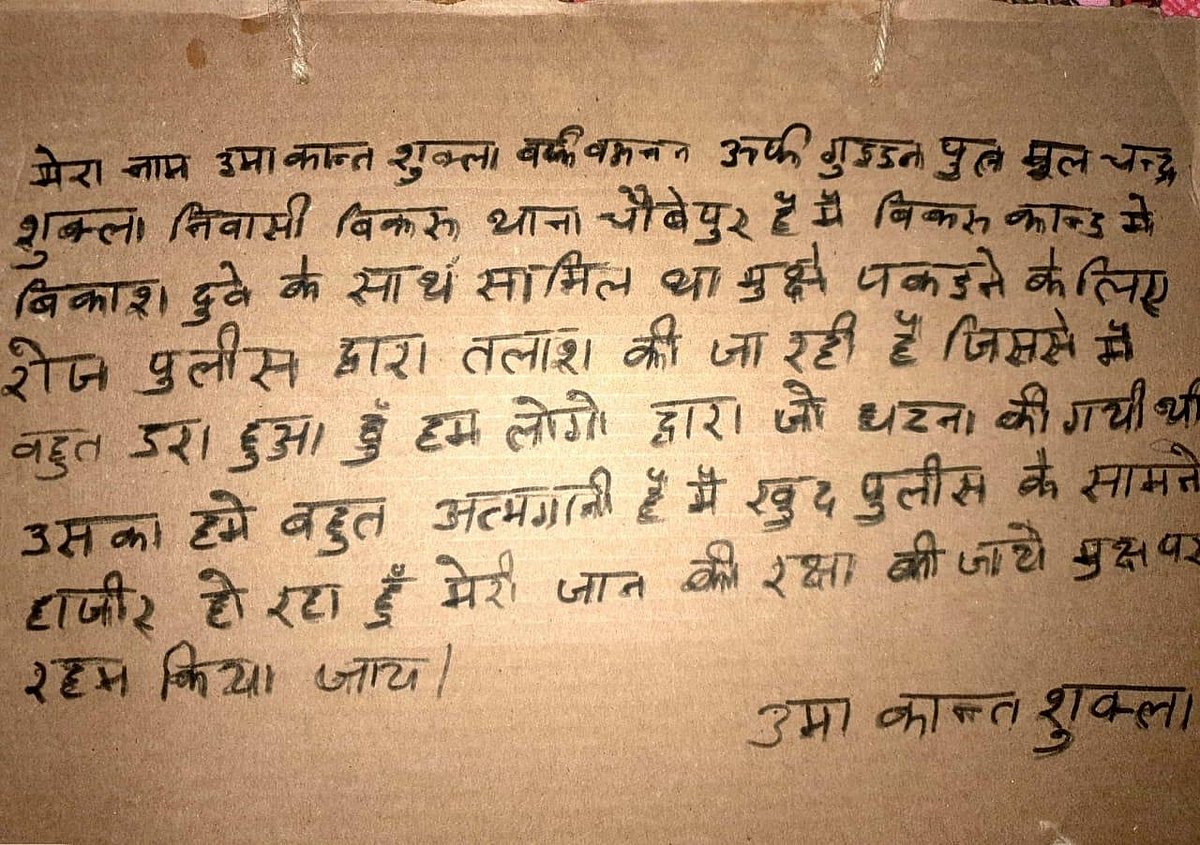 मेरा नाम उमा कान्त शुक्ला उर्फ गुडडन पुत्र मूल चन्द्र
शुक्ला निवासी बिकरू थाना चौबेपुर है मै बिकरू कान्ड मे
बिकाश दुवे के साथ सामिल था मुक्षे पकडने के लिए
रोज पुलीस द्वारा तलाश की जा रही है जिससे मै
बहुत डरा हुआ हुँ हम लोगो द्वारा जो घटना की गयी थी
उसका हमे बहुत अत्मगानी है मै खुद पुलीस के सामने
हाजीर हो रहा हुँ मेरी जान की रक्षा की जाये मुक्ष पर
रहम किया जाय।
उमा कान्त शुक्ला